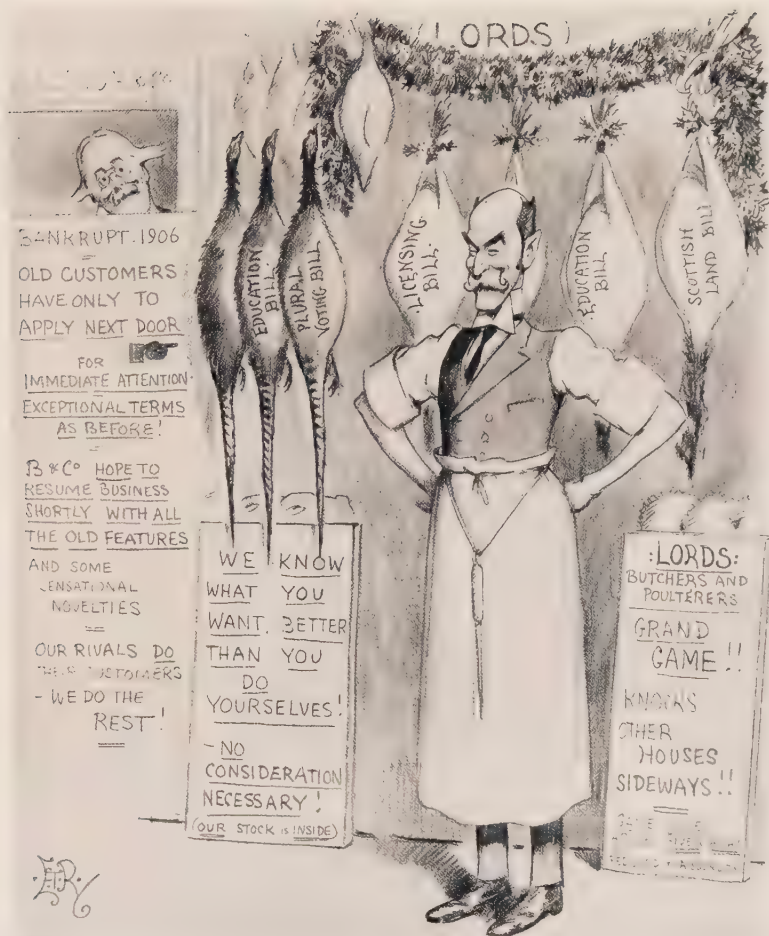 LORDS
BANKRUPT. 1906
OLD CUSTOMERS
HAVE ONLY TO
APPLY NEXT DOOR
FOR
IMMEDIATE ATTENTION.
EXCEPTIONAL TERMS
AS BEFORE!
B & Co HOPE TO
RESUME BUSINESS
SHORTLY WITH ALL
THE OLD FEATURES
AND SOME
SENSATIONAL
NOVELTIES
OUR RIVALS DO
THEIR CUSTOMERS
- WE DO THE
REST!
EDUCATION
BILL
PLURAL
VOTING BILL
LICENSING
BILL.
EDUCATION
BILL
SCOTTISH
LAND BILL
WE KNOW
WHAT YOU
WANT. BETTER
THAN YOU
DO
YOURSELVES!
- NO
CONSIDERATION
NECESSARY!
(OUR STOCK is INSIDE)
:LORDS:
BUTCHERS AND
POULTERERS
GRAND
GAME!!
KNOCKS
OTHER
HOUSES
SIDEWAYS!!